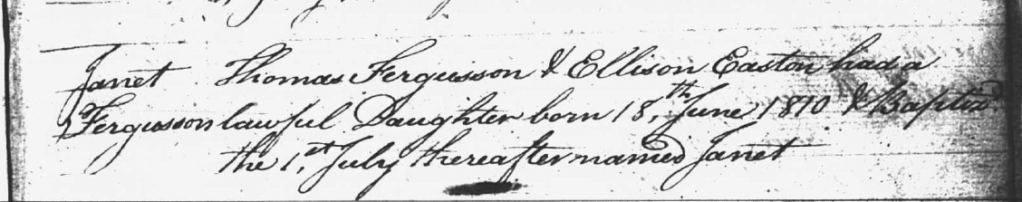 Janet Thomas Fergusson & Ellison Easton had a
Fergusson lawful Daughter born 18,th June 1810 & Baptizd
the 1,st July thereafter named Janet